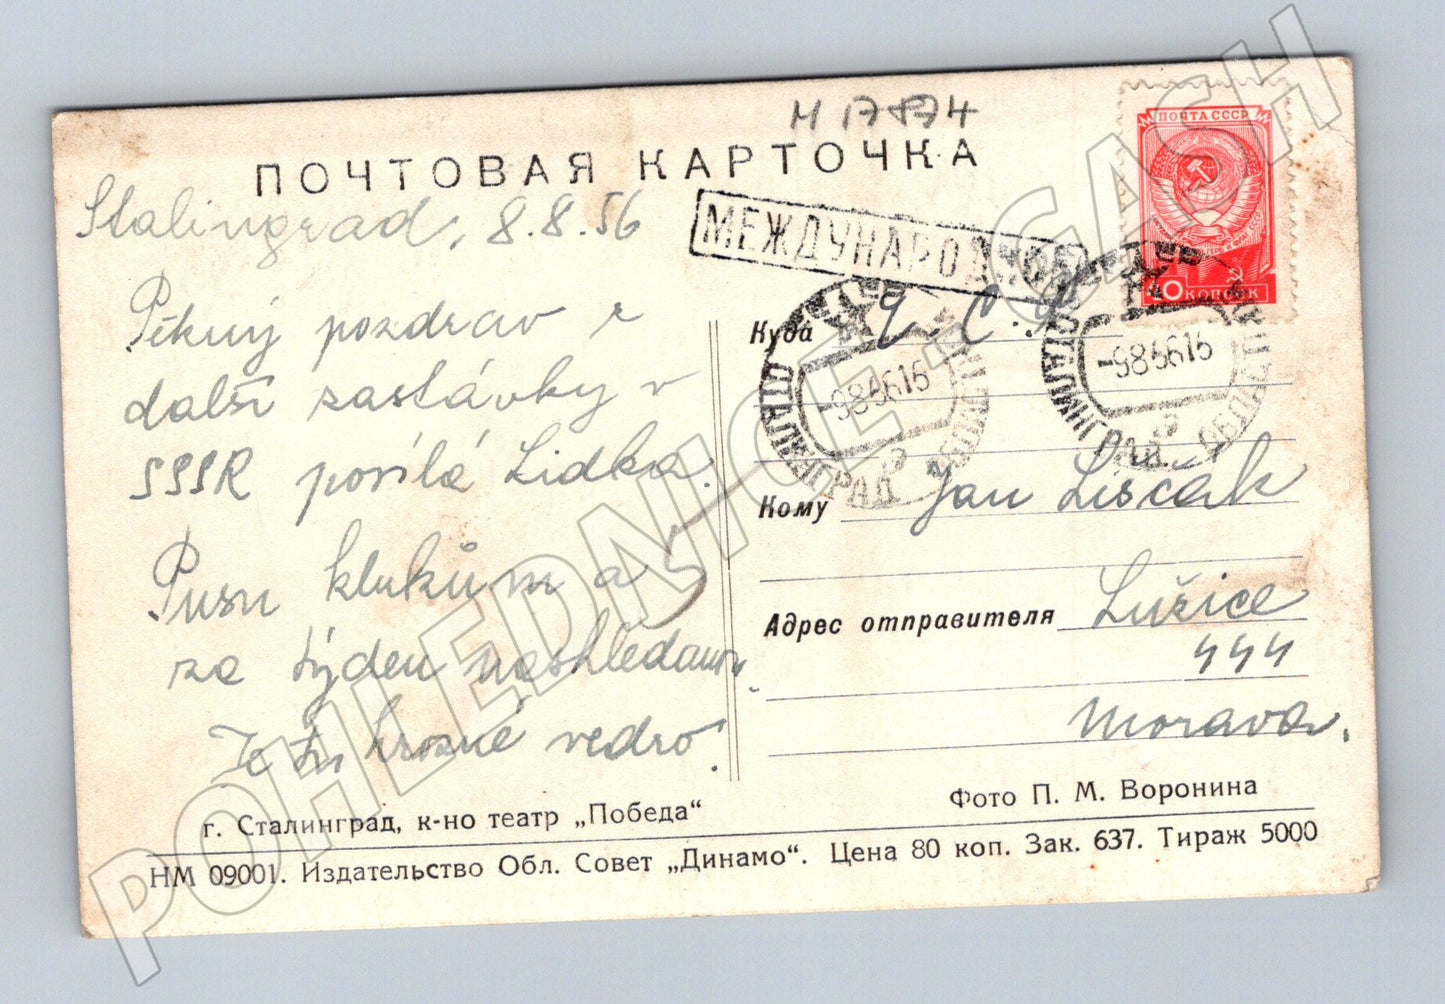 M 17874
ПОЧТОВАЯ КАРТОЧКА
ПОЧТА СССР
40 КОПЕЕК
МЕЖДУНАРОДНОЕ
Stalingrad, 8.8.56
Pěkný pozdrav z
další zastávky v
SSSR posílá Lidka.
Pusu klukům a
za týden nashledanou.
Je tu hrozné vedro.
Куда Č. S. R.
СТАЛИНГРАД
-985616
СТАЛИНГРАД
-985616
Кому Jan Liščák
Адрес отправителя Lužice
444
Morava.
г. Сталинград, к-но театр „Победа“
Фото П. М. Воронина
НМ 09001. Издательство Обл. Совет „Динамо“. Цена 80 коп. Зак. 637. Тираж 5000
POHLEDNICE-CASH